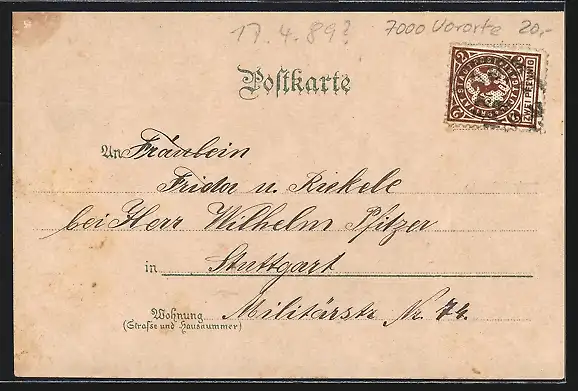 17.4.89? 7000 Vororte 20,-
Postkarte
ZWEI PFENNIG
An Fräulein
Frida u. Rickele
bei Herr Wilhelm Pfitzer
in Stuttgart
Wohnung Militärstr Nr. 74.
(Strasse und Hausnummer)